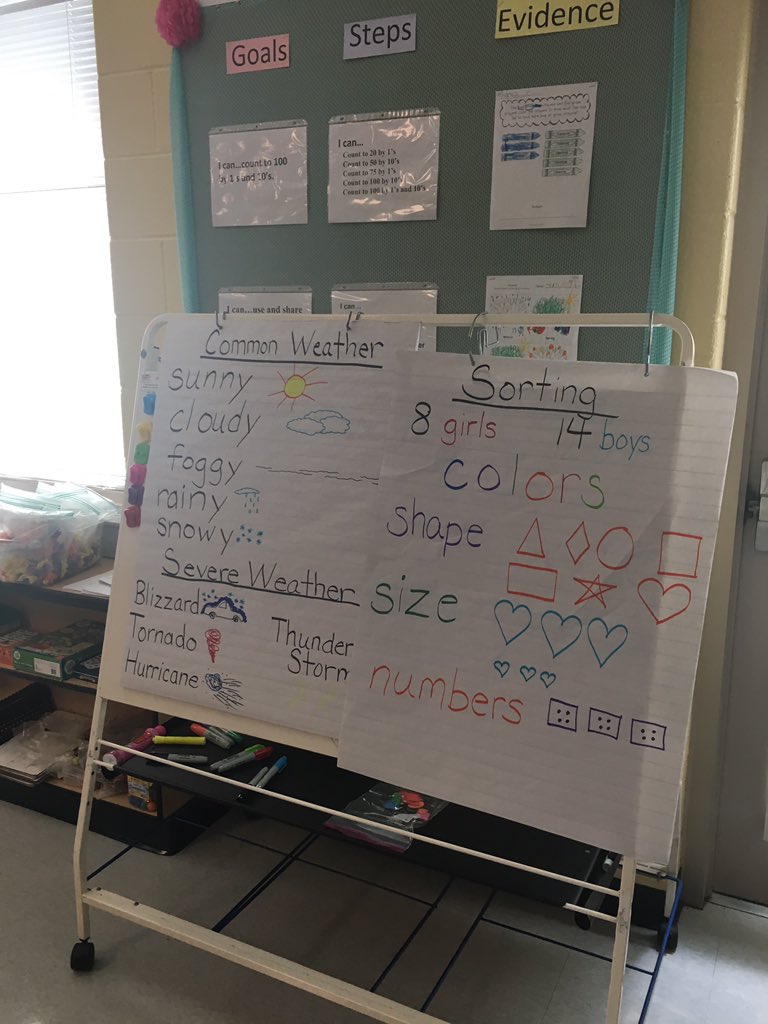 Goals
Steps
Evidence
I can...count to 100
by 1's and 10's.
I can...
Count to 20 by 1's
Count to 50 by 10's
Count to 75 by 1's
Count to 100 by 10's
Count to 100 by 1's and 10's
I can...use and share
I can...
Common Weather
sunny
cloudy
foggy
rainy
snowy
Severe Weather
Blizzard
Tornado
Hurricane
Thunder
Storm
Sorting
8 girls 14 boys
colors
shape
size
numbers